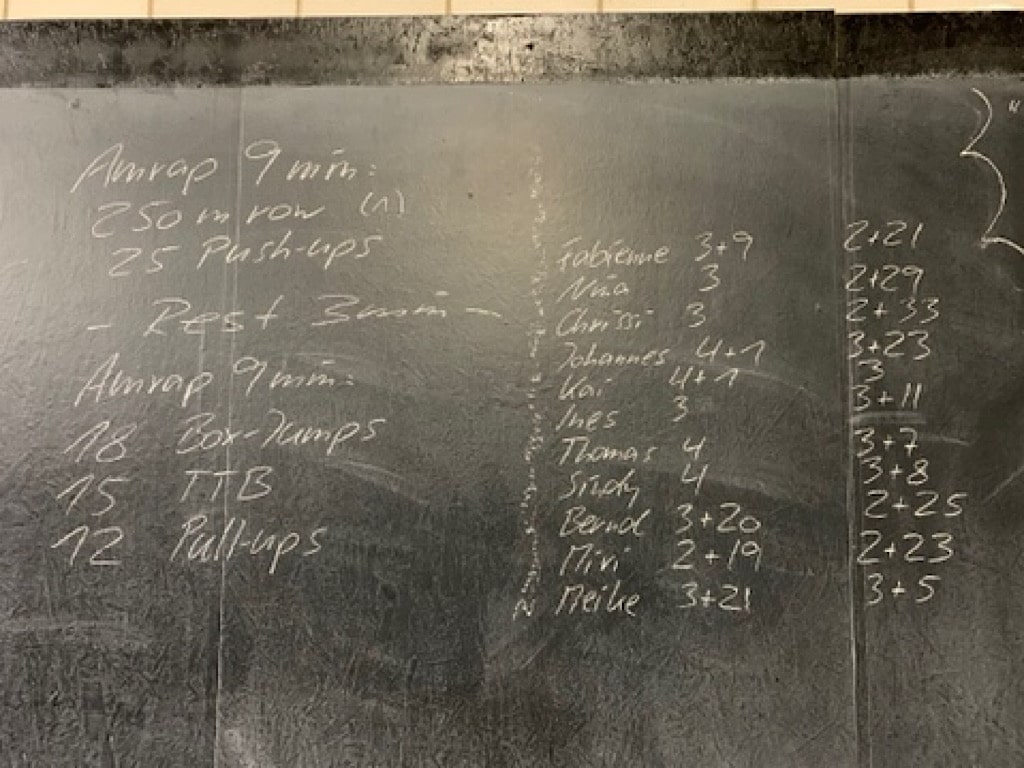 Amrap 9 min:
250 m row (1)
25 Push-ups
- Rest 3min -
Amrap 9 min:
18 Box-Jumps
15 TTB
12 Pull-ups
Fabienne 3+9 2+21
Nina 3 2+29
Chrissi 3 2+33
Johannes 4+1 3+23
Kai 4+1 3
Ines 3 3+11
Thomas 4 3+7
Sindy 4 3+8
Bernd 3+20 2+25
Miri 2+19 2+23
Meike 3+21 3+5